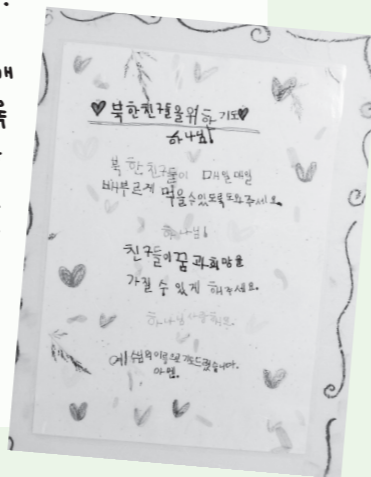 ♥북한친구들을위한 기도♥
하나님!
북한친구들이 매일매일
배부르게 먹을수있도록도와주세요.
하나님!
친구들이꿈과희망을
가질 수 있게 해주세요.
하나님사랑해요.
예수님의이름으로기도드렸습니다.
아멘.